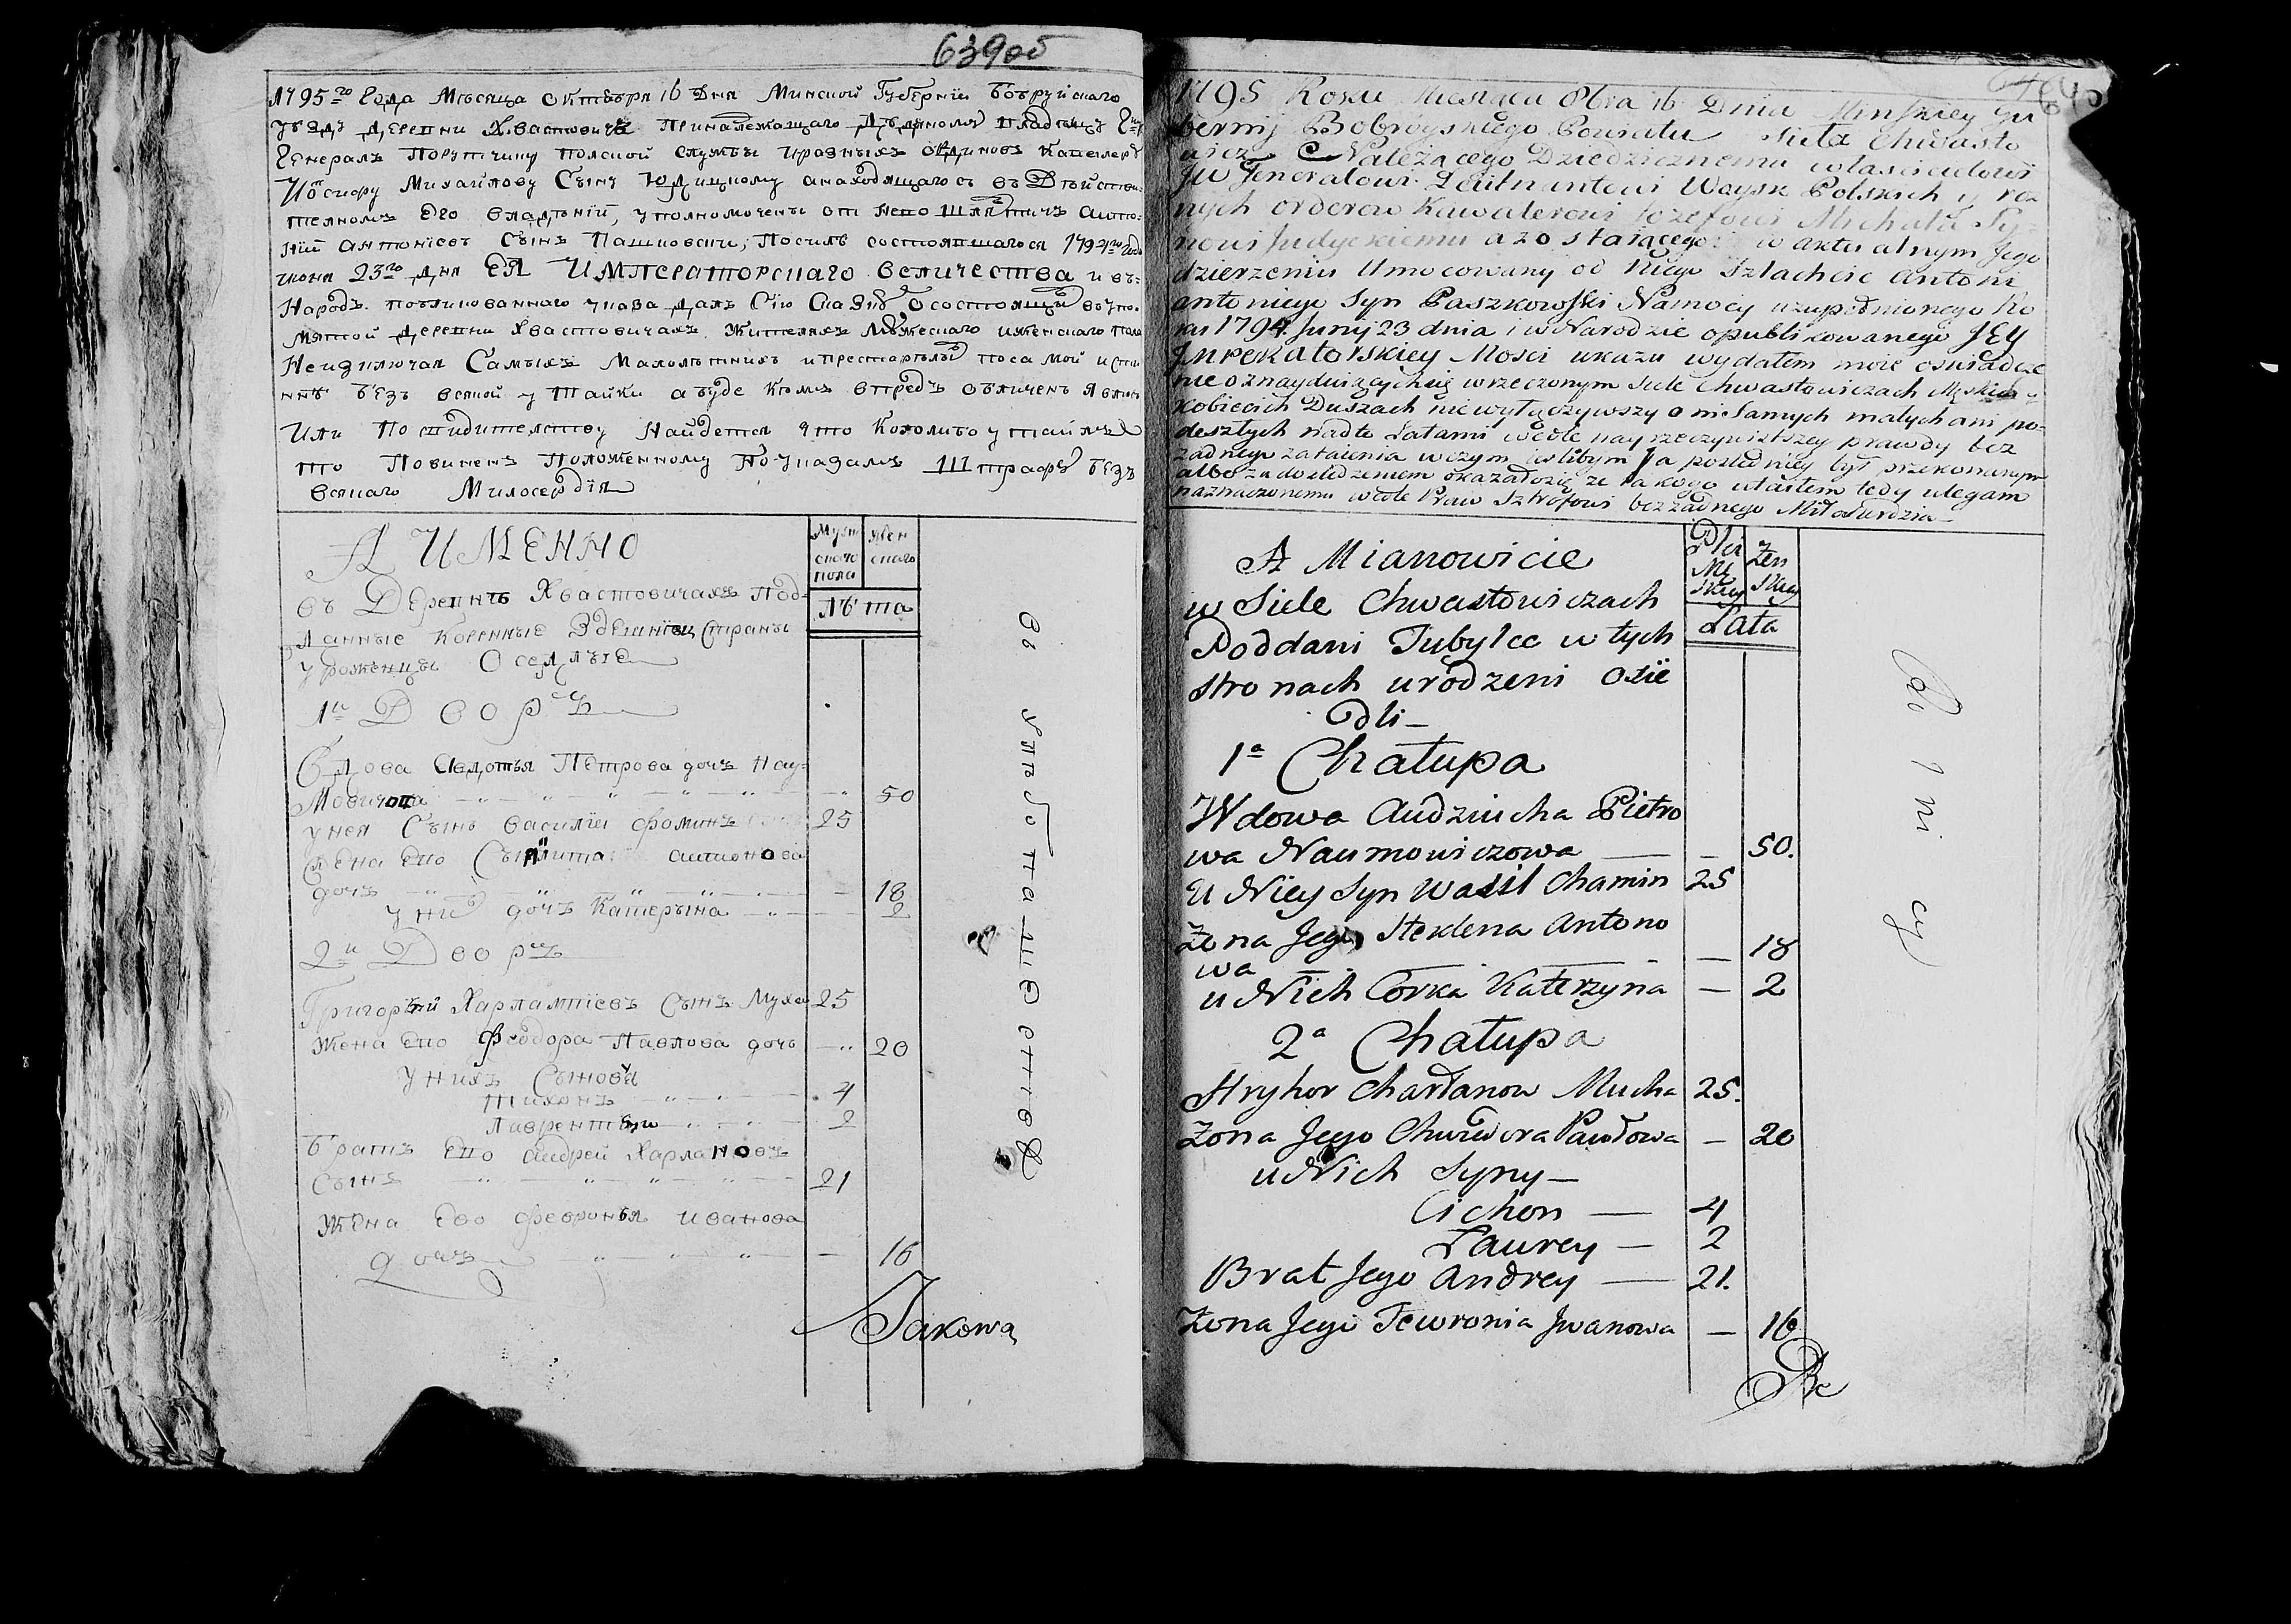 639об
1795го Года Месяца октября 16 Дня Минской Губернии бобруйского
уезда деревни Хвастовичъ принадлежащаго
Генералъ Порутчику полской службы разныхъ
Иосифу Михайлову Сыну Юдицкому а находящагося въ Действи-
телномъ его владении, уполномоченъ от него Шляхтичъ анто-
ний антониевъ Сынъ Пашковски, После состоявшагося 1794го года
июня 23го дня ЕЯ ИМПЕРАТОРСКАГО величества и въ-
Народъ публикованнаго указа далъ Сию Сказку о состоящихъ въупо-
мянутой деревни Хвастовичахъ Жителяхъ мужескаго иженскаго пола
Неизключая Самыхъ Малолетнихъ ипрестарелыхъ посамой исти-
нне безъ всякой утайки а буде кемъ впредъ обличенъ явлюсь
Или По Найдется что Коголибо утаилъ
то Повиненъ Положенному По указамъ Штрафу безъ
всякаго Милосердия
А ИМЕННО
Муж
скаго
пола
жен
скаго
въ Деревне Хвастовичахъ Под-
Лета
данные коренные Здешнихъ страны
уроженцы Оседлые
1й Дворъ
Вдова Авдотья Петрова дочь Нау-
мовичова 50
унея Сынъ Василий Фоминъ 25
жена его антонова
дочь 18
уних дочь Катерына 2
2й Дворъ
Григорий Харлампиевъ Сынъ Муха 25
Жена его Феодора Павлова дочь 20
у нихъ Сыновья
Тихонъ 4
Лаврентий 2
братъ его андрей Харлановъ
Сынъ 21
Жена его Февронья иванова
дочь 16
Jakowa
1795 Roku Miesiąca 8bra 16 Dnia Minskiey Gu
bernij Bobroyskiego Powiatu Sieła Chwasto
wicz Należącego Dziedzicznemu włascicielowi
JW Jenerałowi Leitnantowi Woysk Polskich y roz
nych orderow Kawalerowi Jozefowi Michała Sy-
nowi Judyckiemu a zostaiącego w aktualnym Jego
dzierzeniu Umocowany od niego Szlachcic Antoni
Antoniego Syn Paszkowski Na mocy uzupełnionego Ro
ku 1794 Junij 23 dnia i w Narodzie opublikowanego JEY
JMPERATORSKIEY Mosci ukazu wydałem moie oswiadcze
nie o znayduiących się w rzeczonym Siele Chwastowiczach Męskich y
Kobiecich Duszach nie wyłączywszy o nie samych małych ani po-
deszłych nadto Latami wedle nayrzeczywistszey prawdy bez
zadnego zataienia w czym iesli bym Ja posledniey był przekonanym
albo za dosledzeniem okazało się ze Ja kogo utaiłem tedy ulegam
naznaczonemu wedle Praw Sztrofowi bez zadnego Miłosierdzia
A Mianowicie
Płci
Mę
skiey
Żen
skiey
w Siele Chwastowiczach
Lata
Poddani Tubylce w tych
stronach urodzeni osie
dli –
1a Chałupa
Wdowa Audziucha Pietro
wa Naumowiczowa — 50.
U Niey Syn Wasil Chamin 25
Żona Jego Antono
wa — 18
u Nich Corka Katerzyna — 2
2a Chałupa
Hryhor Charłanow Mucha 25.
Żona Jego Chwiedora Pawłowa — 20
u Nich Syny –
Cichon — 4
Laurey — 2
Brat Jego Andrey — 21.
Żona Jego Fewronia Jwanowa — 16